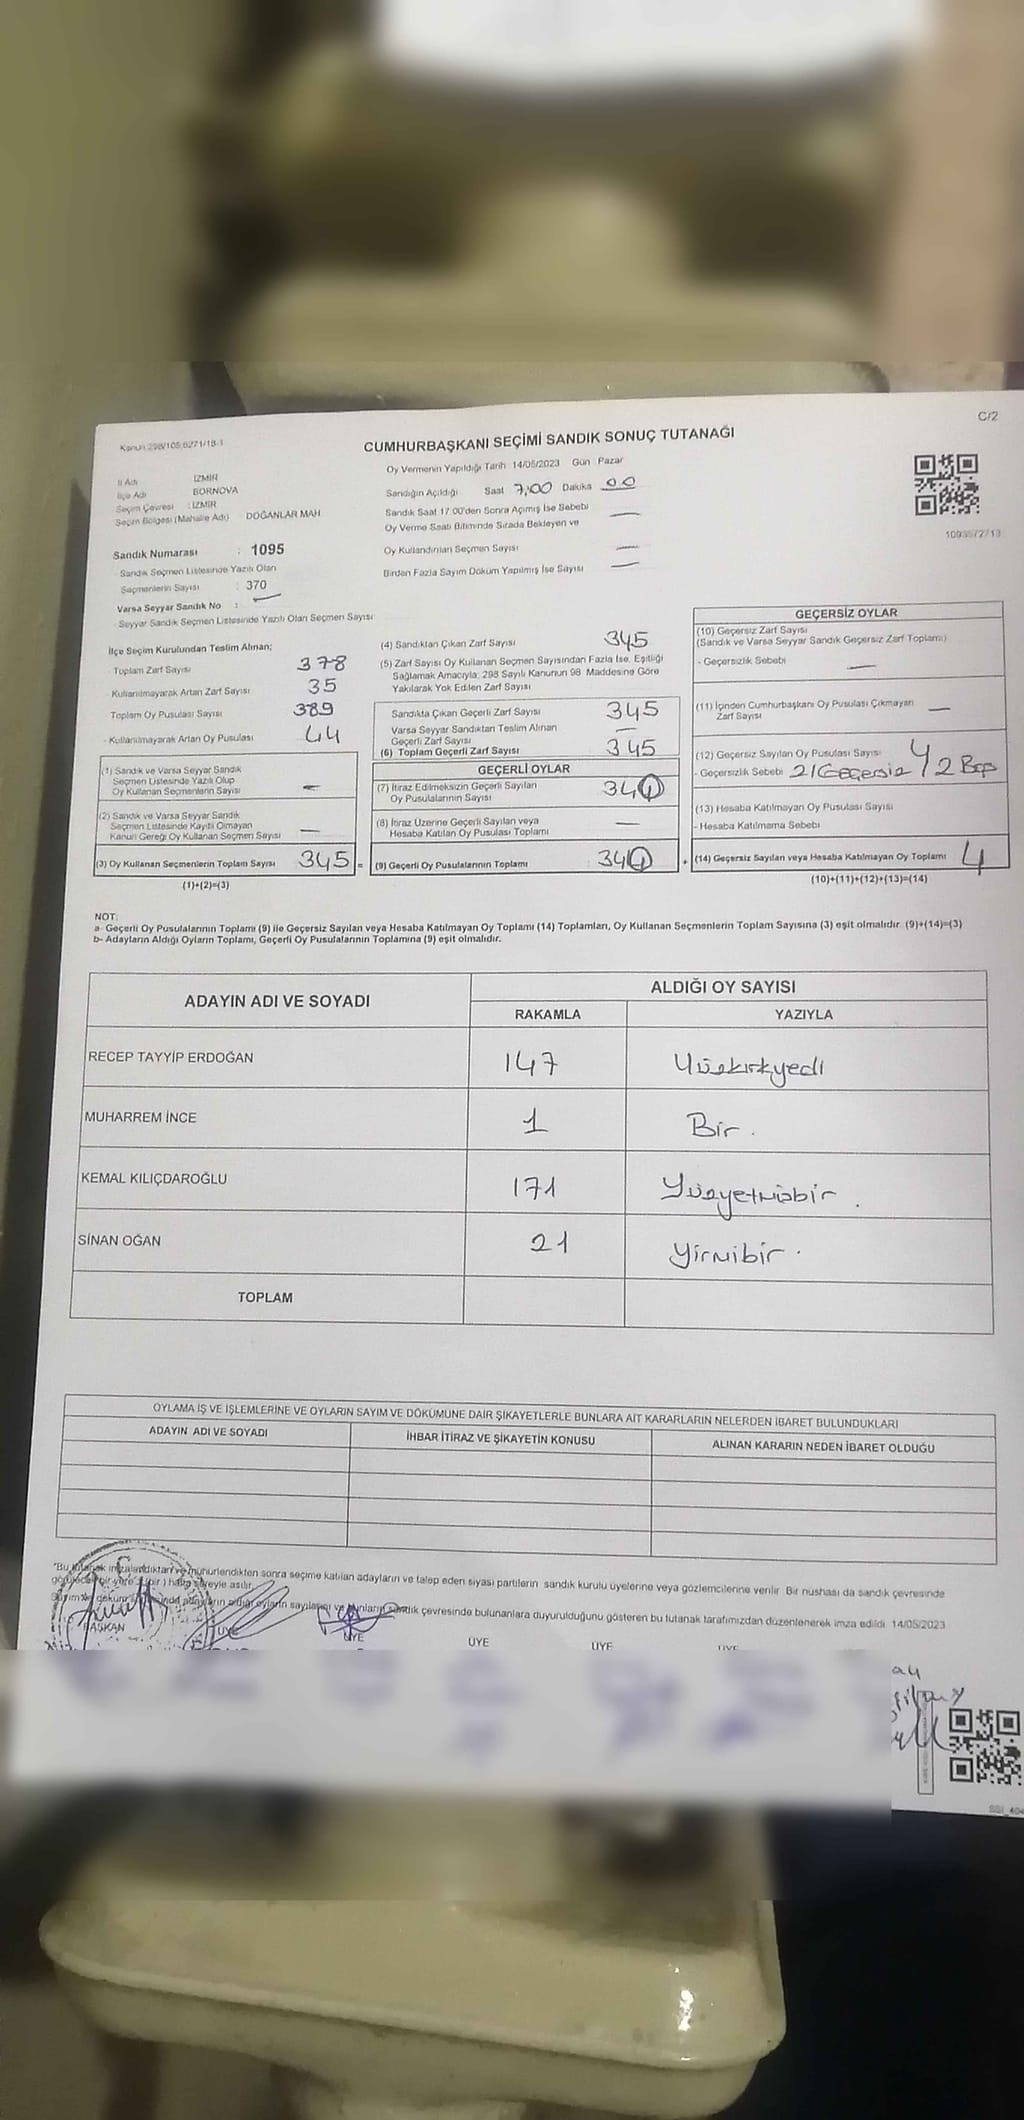 C/2
CUMHURBAŞKANI SEÇİMİ SANDIK SONUÇ TUTANAĞI
İl Adı İZMİR
İlçe Adı BORNOVA
Seçim Çevresi : İZMİR
Seçim Bölgesi (Mahalle Adı) DOĞANLAR MAH
Sandık Numarası : 1095
Sandık Seçmen Listesinde Yazılı Olan
Seçmenlerin Sayısı : 370
Varsa Seyyar Sandık No :
- Seyyar Sandık Seçmen Listesinde Yazılı Olan Seçmen Sayısı
Oy Vermenin Yapıldığı Tarih 14/05/2023 Gün Pazar
Sandığın Açıldığı Saat 7:00 Dakika 00
Sandık Saat 17.00'den Sonra Açımış İse Sebebi —
Oy Verme Saati Bitiminde Sırada Bekleyen ve
Oy Kullandırılan Seçmen Sayısı —
Birden Fazla Sayım Döküm Yapılmış İse Sayısı —
1093572713
İlçe Seçim Kurulundan Teslim Alınan;
- Toplam Zarf Sayısı 378
- Kullanılmayarak Artan Zarf Sayısı 35
Toplam Oy Pusulası Sayısı 389
- Kullanılmayarak Artan Oy Pusulası 44
(1) Sandık ve Varsa Seyyar Sandık
Seçmen Listesinde Yazılı Olup
Oy Kullanan Seçmenlerin Sayısı —
(2) Sandık ve Varsa Seyyar Sandık
Seçmen Listesinde Kayıtlı Olmayan
Kanun Gereği Oy Kullanan Seçmen Sayısı —
(3) Oy Kullanan Seçmenlerin Toplam Sayısı 345 =
(1)+(2)=(3)
(4) Sandıktan Çıkan Zarf Sayısı 345
(5) Zarf Sayısı Oy Kullanan Seçmen Sayısından Fazla İse, Eşitliği
Sağlamak Amacıyla; 298 Sayılı Kanunun 98 Maddesine Göre
Yakılarak Yok Edilen Zarf Sayısı
Sandıkta Çıkan Geçerli Zarf Sayısı 345
Varsa Seyyar Sandıktan Teslim Alınan
Geçerli Zarf Sayısı —
(6) Toplam Geçerli Zarf Sayısı 345
GEÇERLİ OYLAR
(7) İtiraz Edilmeksizin Geçerli Sayılan
Oy Pusulalarının Sayısı
(8) İtiraz Üzerine Geçerli Sayılan veya
Hesaba Katılan Oy Pusulası Toplamı —
(9) Geçerli Oy Pusulalarının Toplamı
GEÇERSİZ OYLAR
(10) Geçersiz Zarf Sayısı
(Sandık ve Varsa Seyyar Sandık Geçersiz Zarf Toplamı)
- Geçersizlik Sebebi —
(11) İçinden Cumhurbaşkanı Oy Pusulası Çıkmayan
Zarf Sayısı —
(12) Geçersiz Sayılan Oy Pusulası Sayısı 4
- Geçersizlik Sebebi 2/Geçersiz / 2 Boş
(13) Hesaba Katılmayan Oy Pusulası Sayısı
- Hesaba Katılmama Sebebi
(14) Geçersiz Sayılan veya Hesaba Katılmayan Oy Toplamı 4
(10)+(11)+(12)+(13)=(14)
NOT:
a- Geçerli Oy Pusulalarının Toplamı (9) ile Geçersiz Sayılan veya Hesaba Katılmayan Oy Toplamı (14) Toplamları, Oy Kullanan Seçmenlerin Toplam Sayısına (3) eşit olmalıdır. (9)+(14)=(3)
b- Adayların Aldığı Oyların Toplamı, Geçerli Oy Pusulalarının Toplamına (9) eşit olmalıdır.
ADAYIN ADI VE SOYADI ALDIĞI OY SAYISI
RAKAMLA YAZIYLA
RECEP TAYYİP ERDOĞAN 147 Yüzkırkyedi
MUHARREM İNCE 1 Bir.
KEMAL KILIÇDAROĞLU 171 Yüzyetmişbir.
SİNAN OĞAN 21 Yirmibir.
TOPLAM
OYLAMA İŞ VE İŞLEMLERİNE VE OYLARIN SAYIM VE DÖKÜMÜNE DAİR ŞİKAYETLERLE BUNLARA AİT KARARLARIN NELERDEN İBARET BULUNDUKLARI
ADAYIN ADI VE SOYADI İHBAR İTİRAZ VE ŞİKAYETİN KONUSU ALINAN KARARIN NEDEN İBARET OLDUĞU
"Bu tutanak imzalandıktan ve mühürlendikten sonra seçime katılan adayların ve talep eden siyası partilerin sandık kurulu üyelerine veya gözlemcilerine verilir. Bir nüshası da sandık çevresinde
süreyle asılır.
sandık çevresinde bulunanlara duyurulduğunu gösteren bu tutanak tarafımızdan düzenlenerek imza edildi. 14/05/2023
BAŞKAN ÜYE ÜYE ÜYE ÜYE ÜYE